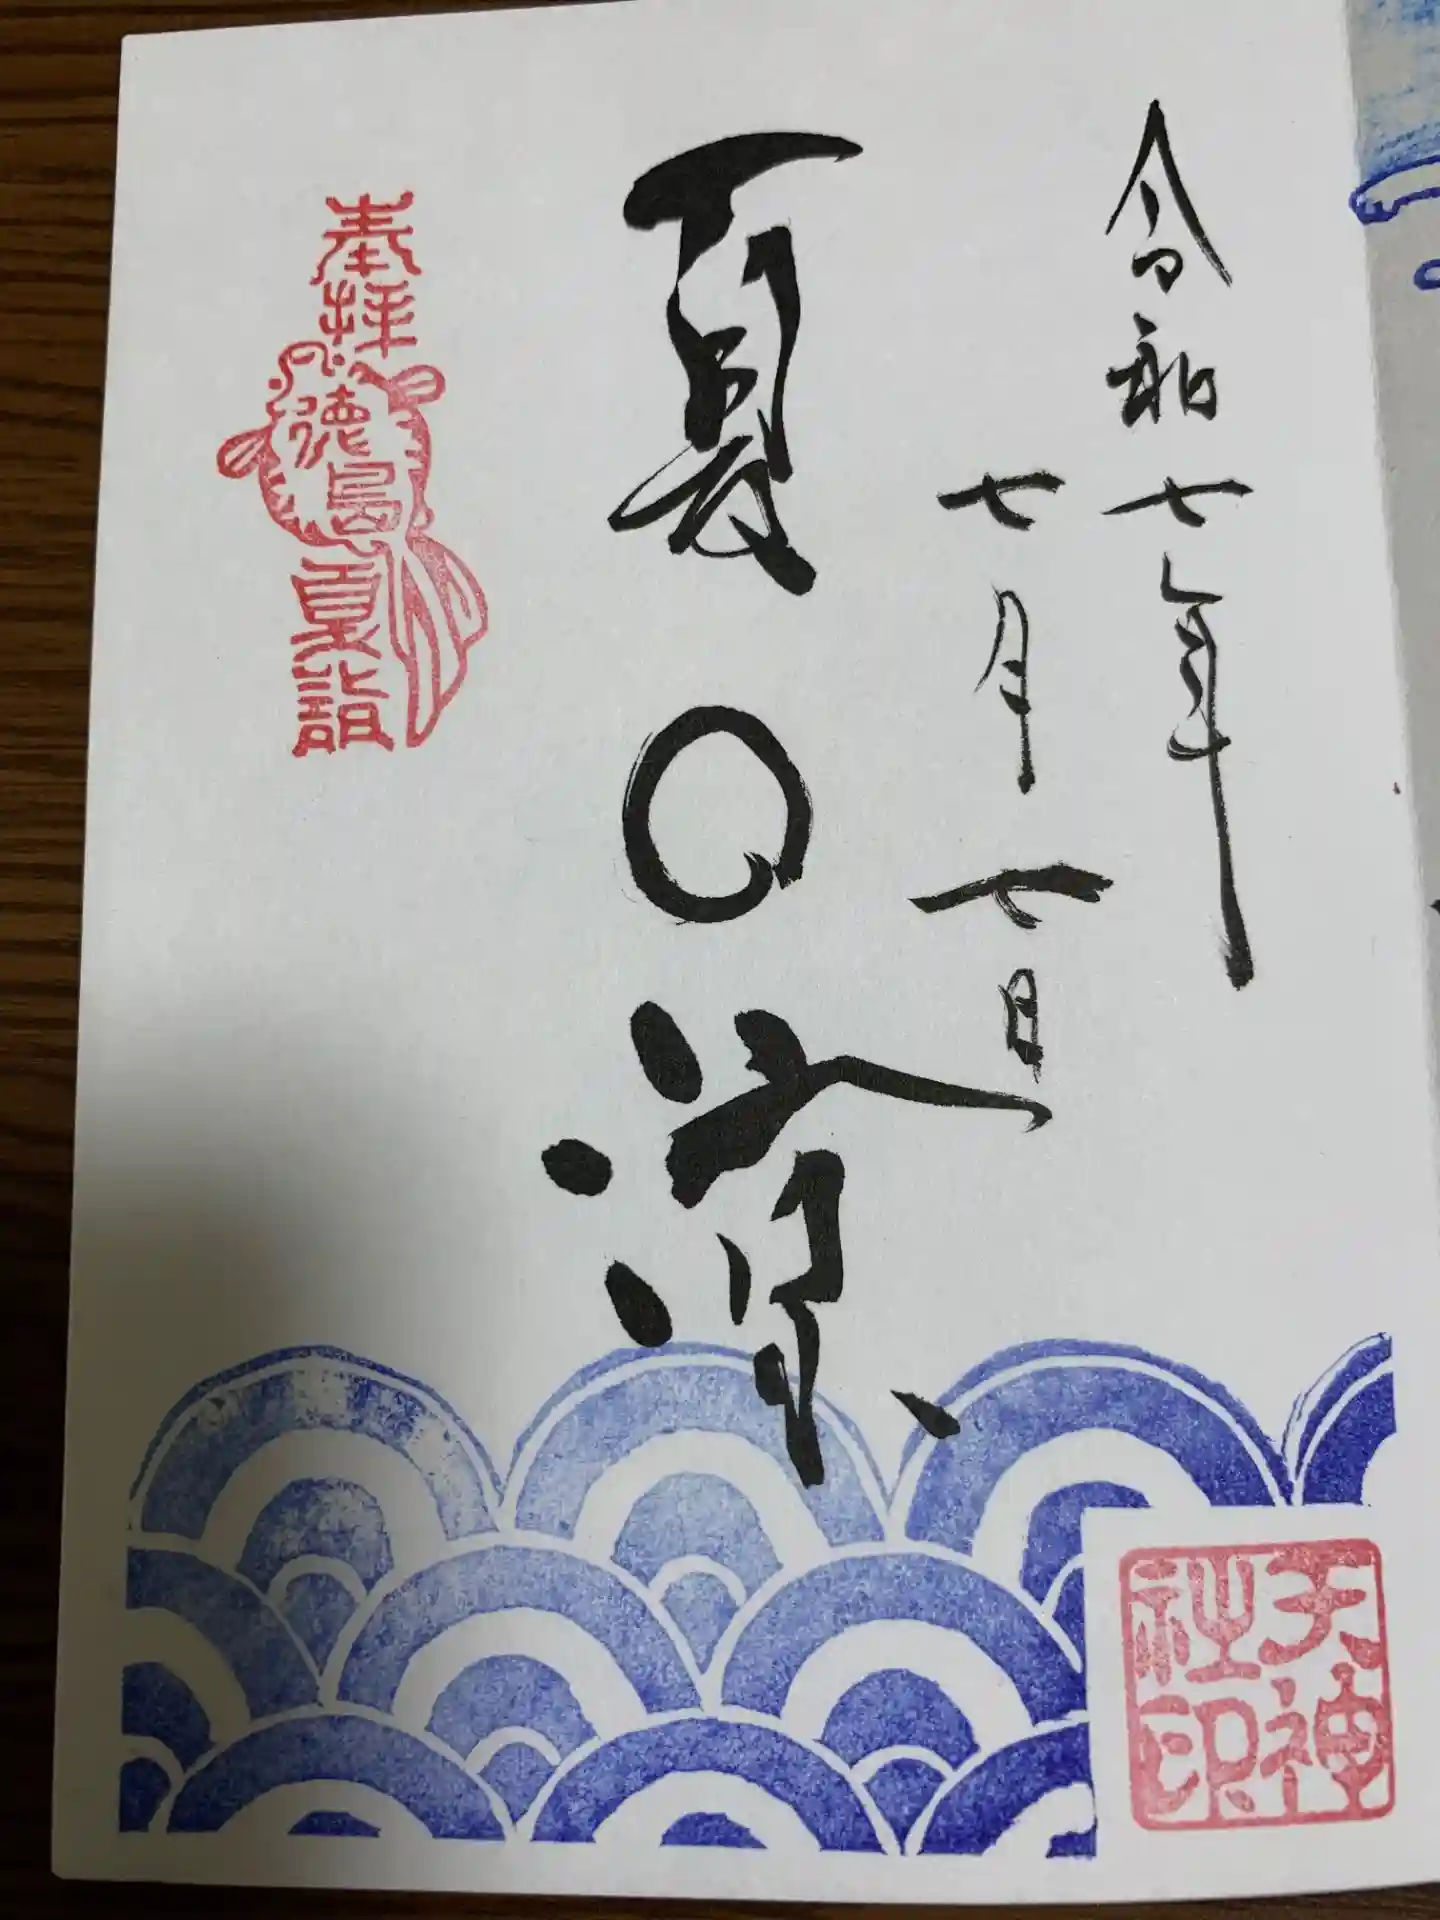 令和七年
七月七日
夏〇
奉拝
徳島夏詣
天神
社印